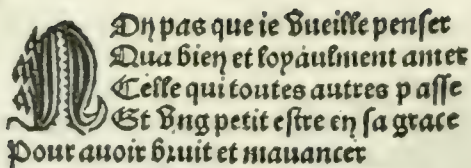 NOn pas que ie vueille penser
Qua bien et loyaulment amer
Celle qui toutes autres passe
Et vng petit estre en sa grace
Pour auoir bruit et mauancer